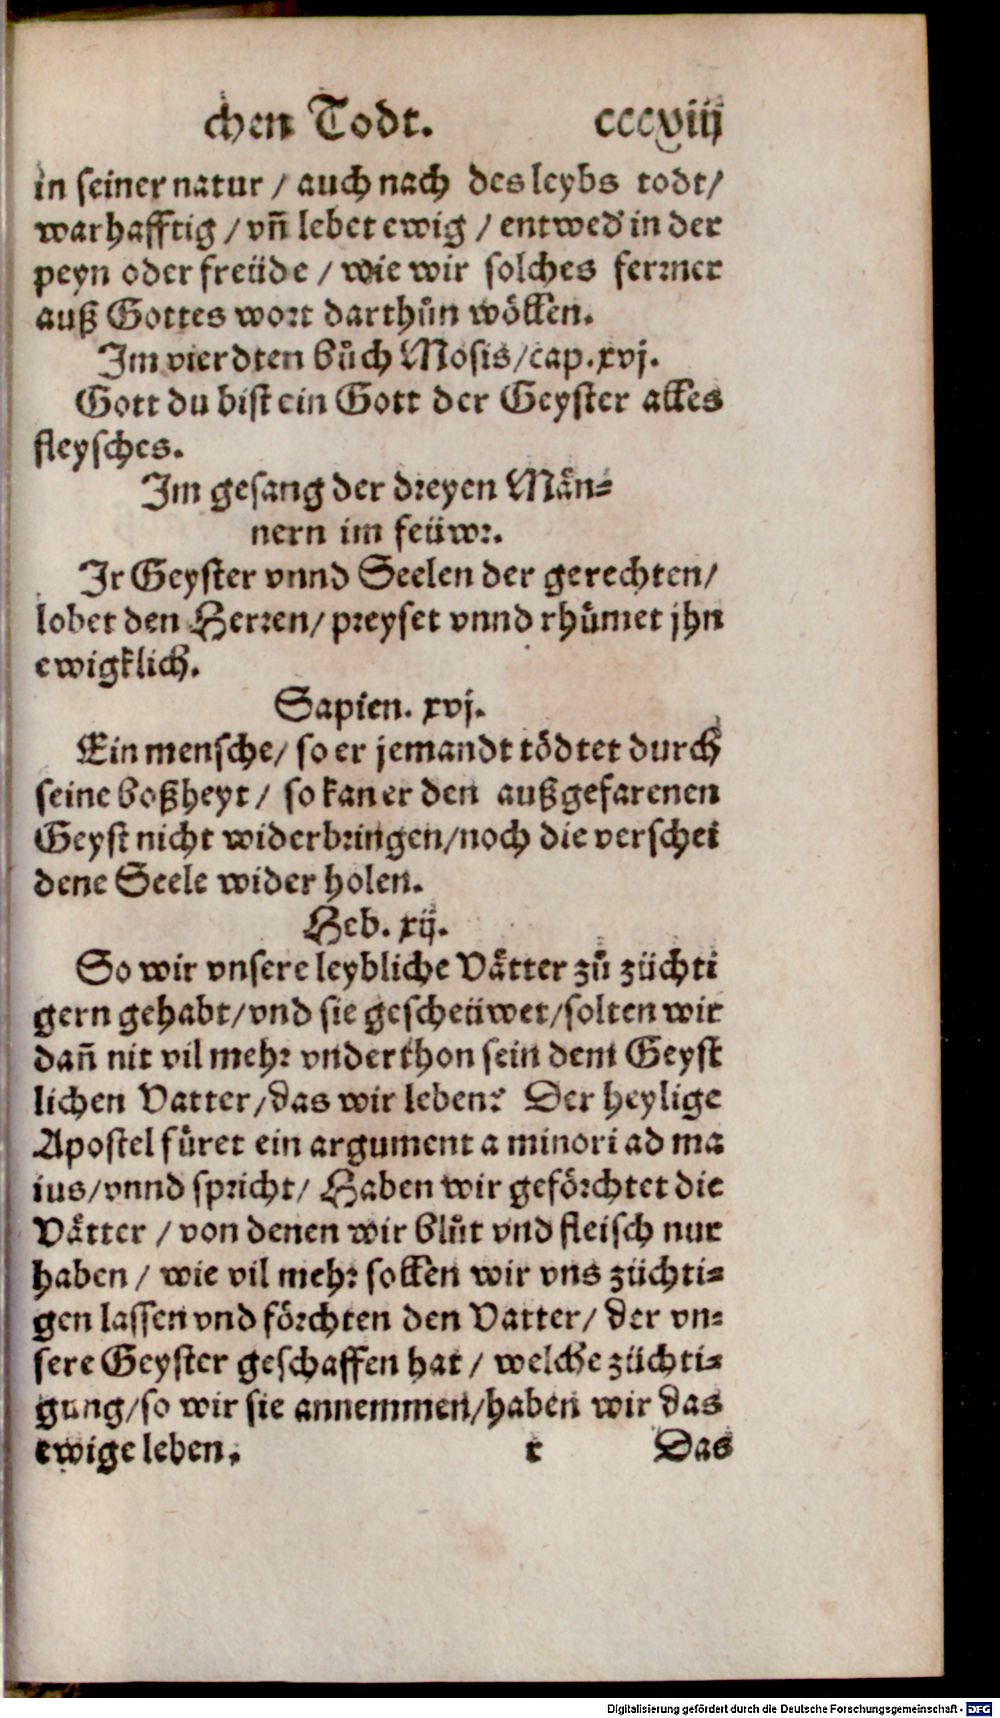 chen Todt. cccxviij
in seiner natur / auch nach des leybs todt/
warhafftig / vñ lebet ewig / entwed' in der
peyn oder freüde / wie wir solches ferꝛner
auß Gottes woꝛt darthůn wöllen.
Im vierdten bůch Mosis/cap.xvj.
Gott du bist ein Gott der Geyster alles
fleysches.
Im gesang der dꝛeyen Mäñ-
nern im feüwꝛ.
Ir Geyster vnnd Seelen der gerechten/
lobet den Herꝛen/ pꝛeyset vnnd rhůmet jhn
ewigklich.
Sapien. xvj.
Ein mensche/ so er jemandt tödtet durch
seine boßheyt / so kan er den außgefarenen
Geyst nicht widerbꝛingen/noch die verschei
dene Seele wider holen.
Heb. xij.
So wir vnsere leybliche Vätter zů züchti
gern gehabt/vnd sie gescheüwet/solten wir
dañ nit vil mehꝛ vnderthon sein dem Geyst
lichen Vatter/das wir leben? Der heylige
Apostel füret ein argument a minori ad ma
ius/vnnd spꝛicht/ Haben wir geföꝛchtet die
Vätter / von denen wir blůt vnd fleisch nur
haben / wie vil mehꝛ sollen wir vns züchti-
gen lassen vnd föꝛchten den Vatter/ der vn-
sere Geyster geschaffen hat / welche züchti-
gung/so wir sie annemmen/haben wir das
ewige leben. r Das
Digitalisierung gefördert durch die Deutsche Forschungsgemeinschaft - DFG